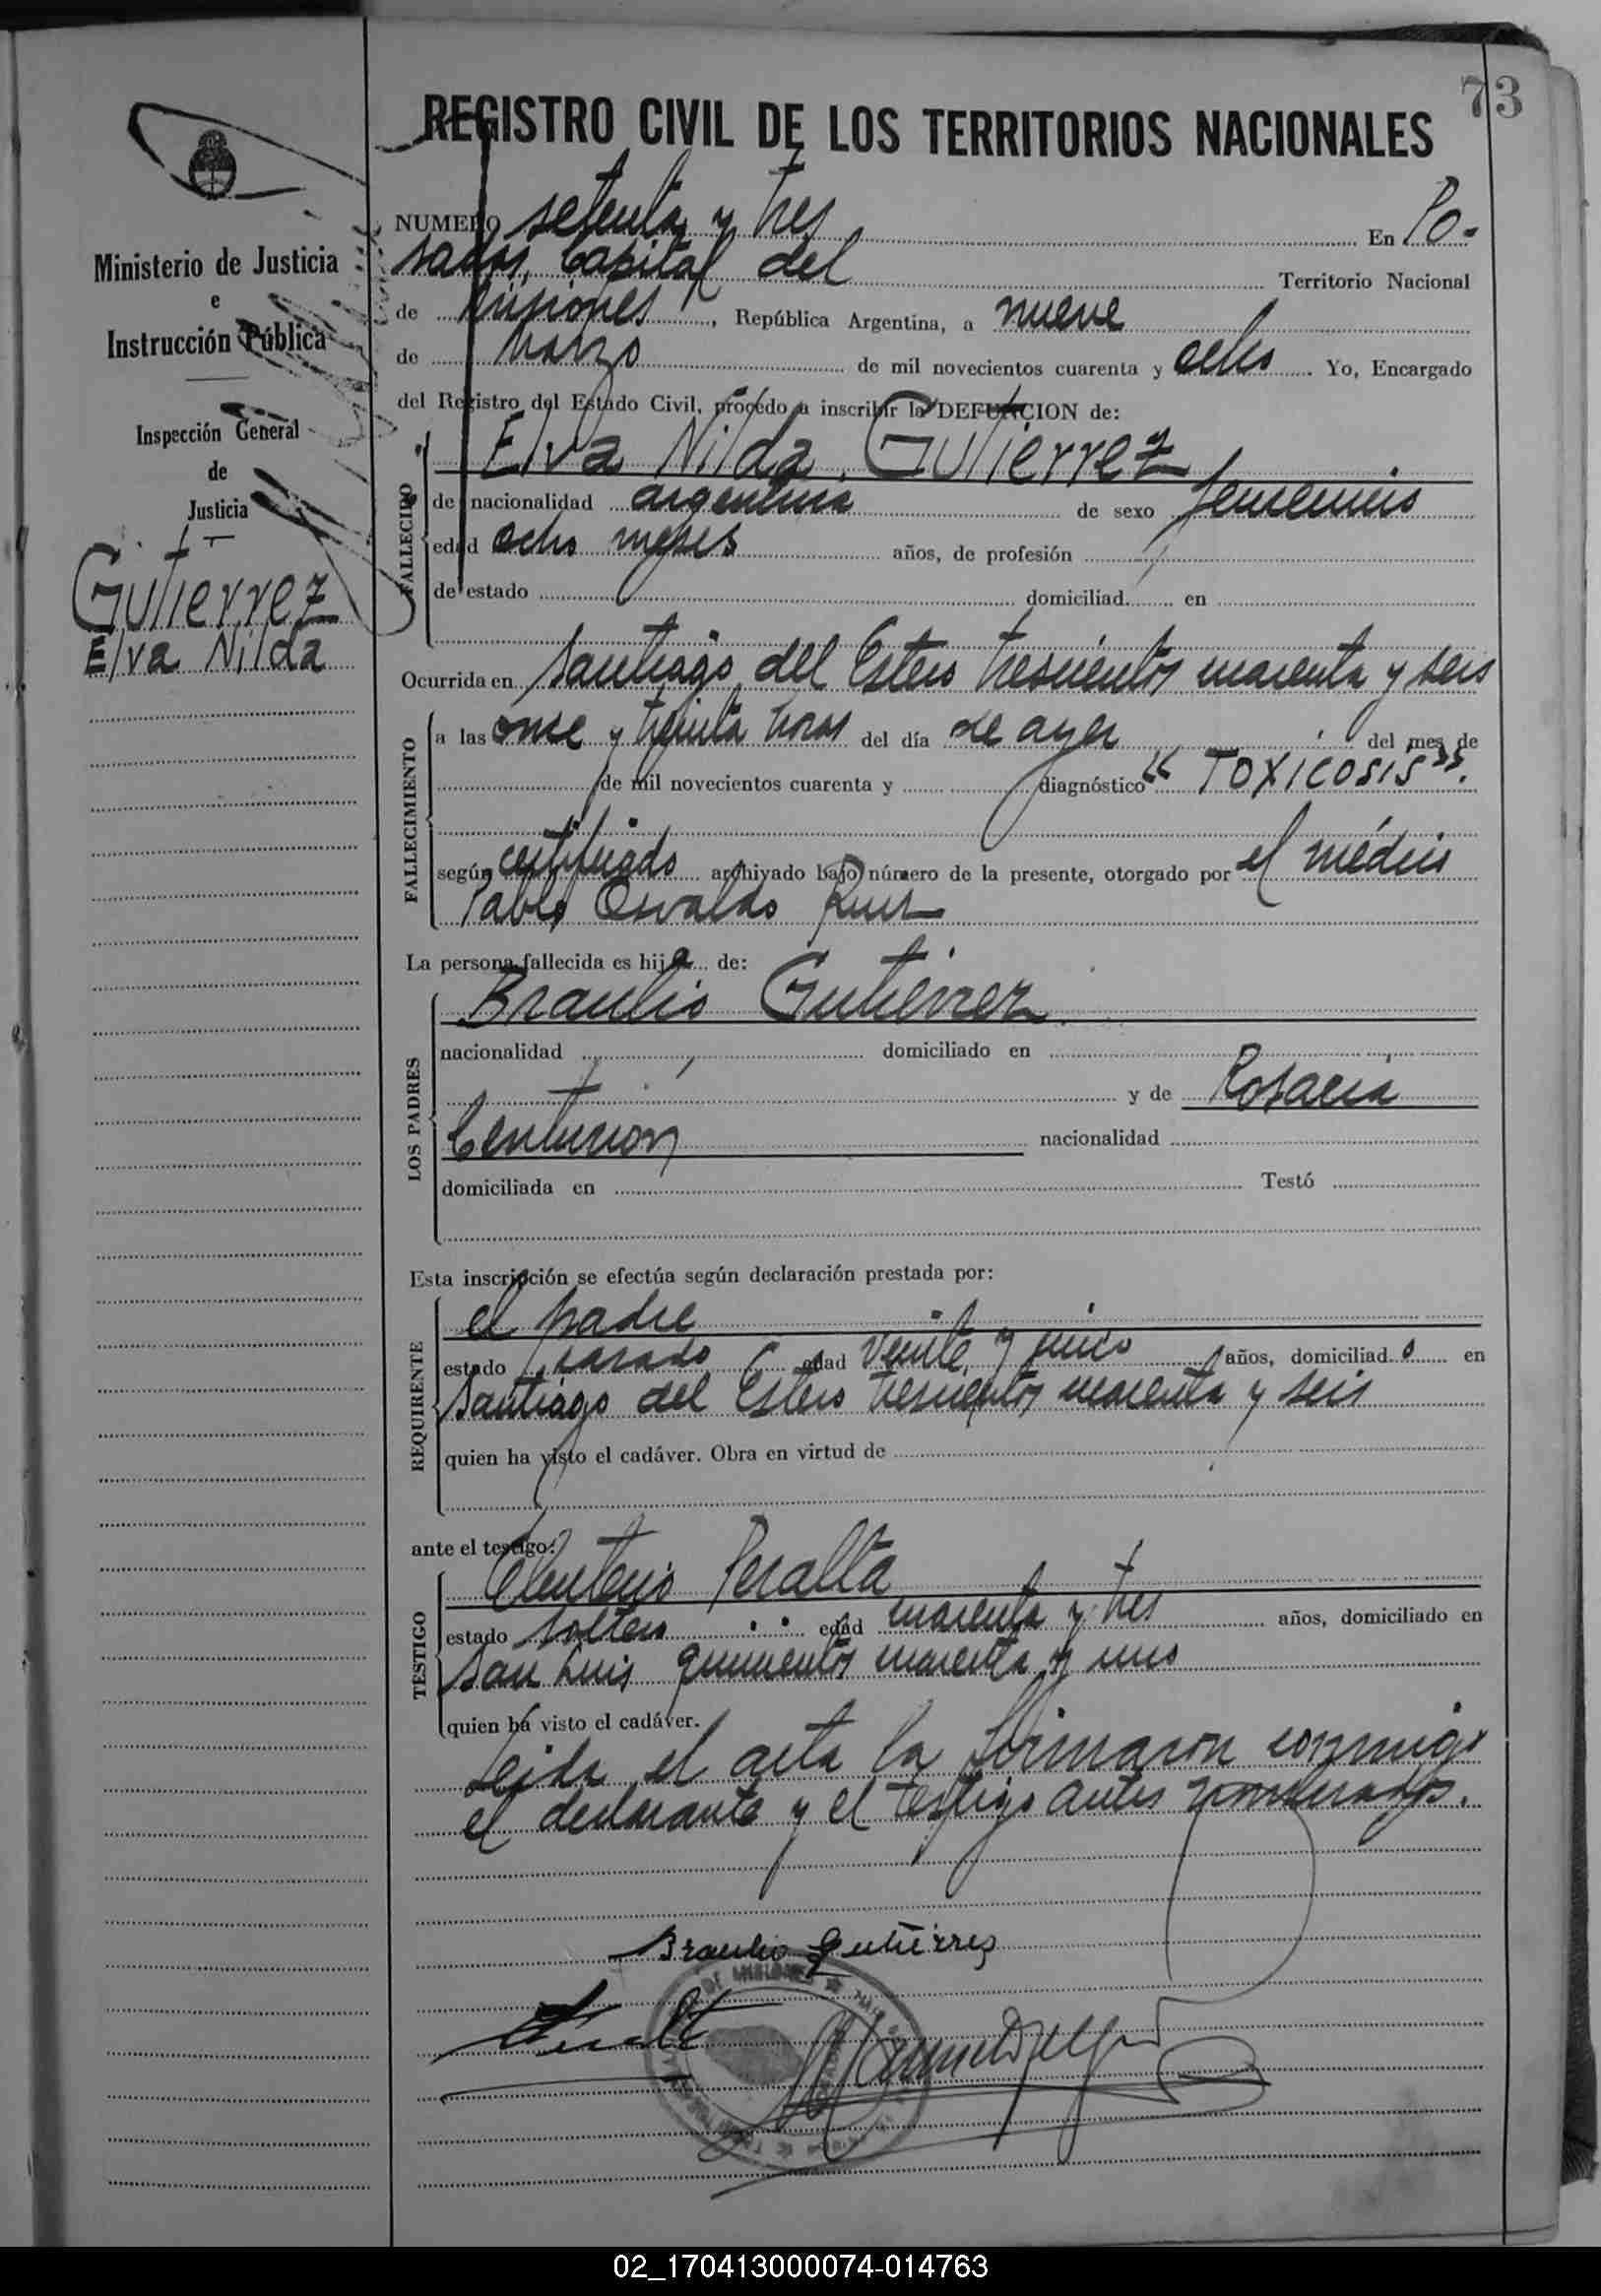 73
REGISTRO CIVIL DE LOS TERRITORIOS NACIONALES
Ministerio de Justicia
e
Instrucción Pública
Inspección General
de
Justicia
Gutierrez
Elva Nilda
NUMERO setenta y tres En Po-
sadas, Capital del Territorio Nacional
de Misiones, República Argentina, a nueve
de Marzo de mil novecientos cuarenta y ocho. Yo, Encargado
del Registro del Estado Civil, procedo a inscribir la DEFUNCION de:
FALLECIDO
Elva Nilda Gutierrez
de nacionalidad argentina de sexo femenino
edad ocho meses años, de profesión
de estado domiciliad en
Ocurrida en Santiago del Estero trescientos cuarenta y seis
FALLECIMIENTO
a las once y treinta horas del día de ayer del mes de
de mil novecientos cuarenta y diagnóstico "TOXICOSIS".
según certificado archivado bajo número de la presente, otorgado por el médico
Pablo Osvaldo Ruiz
La persona fallecida es hija de:
LOS PADRES
Braulio Gutiérrez
nacionalidad domiciliado en
y de Rosaria
Centurión nacionalidad
domiciliada en Testó
Esta inscripción se efectúa según declaración prestada por:
REQUIRENTE
el padre
estado casado edad veinte y cinco años, domiciliado en
Santiago del Estero trescientos cuarenta y seis
quien ha visto el cadáver. Obra en virtud de
ante el testigo:
TESTIGO
Eleuterio Peralta
estado soltero edad cuarenta y tres años, domiciliado en
San Luis quinientos cuarenta y uno
quien ha visto el cadáver.
Leida el acta la firmaron conmigo
el declarante y el testigo antes nombrados.
Braulio Gutierres
02_170413000074-014763